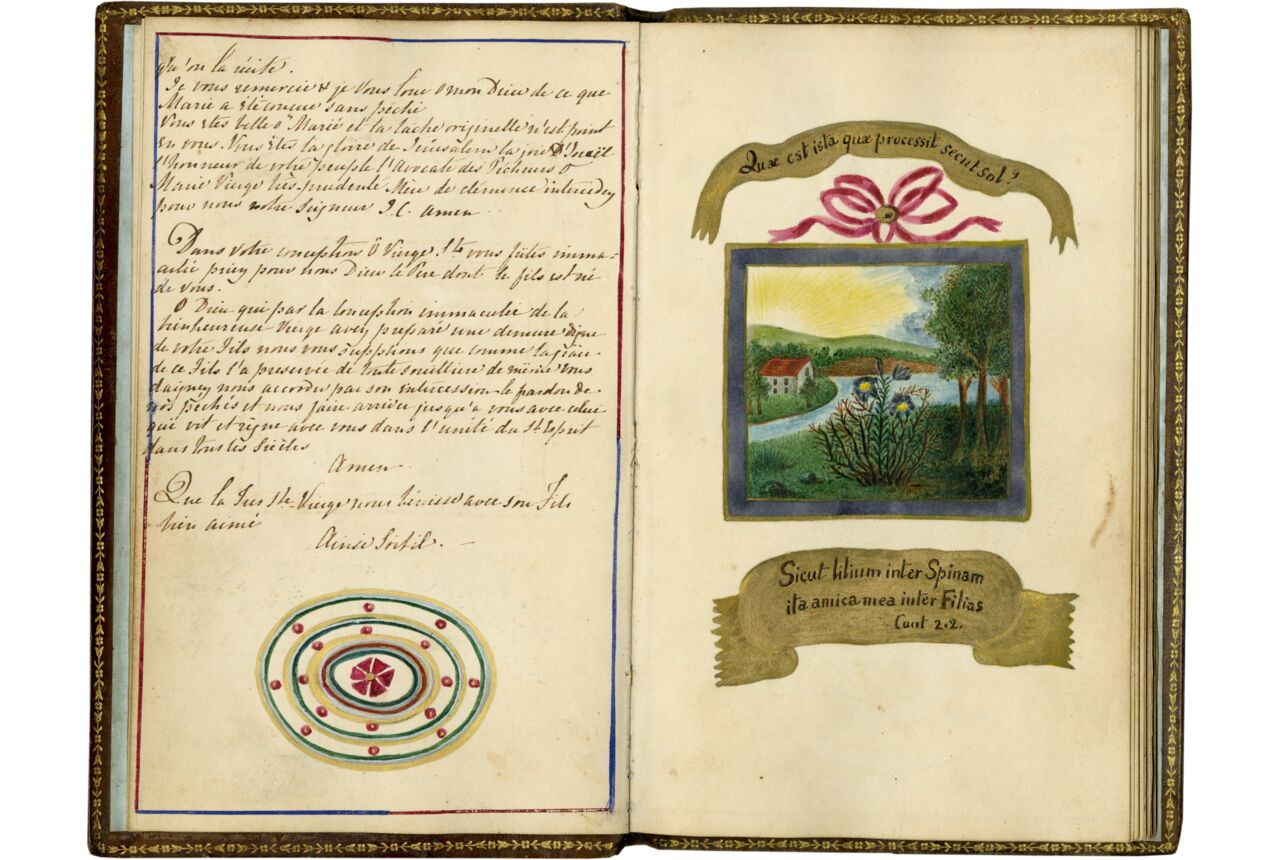 qu'on la récite.
Je vous remercie & je vous loue o mon Dieu de ce que
Marie a été conçue sans péché
Vous êtes belle ô Marie et la tache originelle n'est point
en vous. Vous êtes la gloire de Jérusalem la joie D'Israël
l'honneur de votre peuple l'Avocate des Pécheurs O
Marie Vierge très prudente Mère de clémence intercedez
pour nous notre Seigneur J.C. amen
Dans votre conception ô Vierge Ste vous fûtes imma-
culée priez pour nous Dieu le Père dont le fils est né
de vous.
O Dieu qui par la Conception immaculée de la
bienheureuse Vierge avez préparé une demeure digne
de votre Fils nous vous supplions que comme la grâce
de ce Fils l'a préservée de toute souillure de même vous
daigniez nous accorder par son intercession le pardon de
nos péchés et nous faire arriver jusqu'a vous avec celui
qui vit et règne avec vous dans l'unité du St Esprit
dans tous les Siècles
Amen
Que la Très Ste Vierge nous bénisse avec son Fils
bien aimé
Ainsi Soit il. —
Quæ est ista quæ processit secut sol?
Sicut lilium inter Spinam
ita amica mea inter Filias
Cant 2.2.